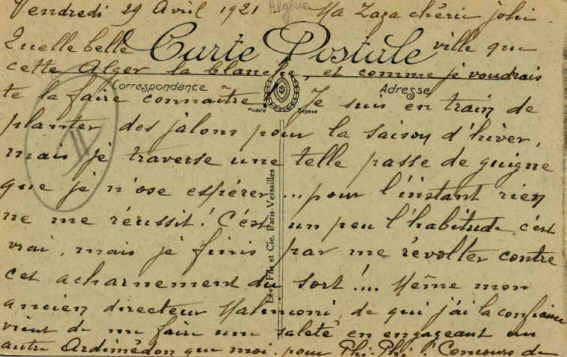 Vendredi 29 Avril 1921 Ma Zaza chérie jolie
Quelle belle Carte Postale ville que
cette Alger la blanche, et comme je voudrais
Correspondance Adresse
te la faire connaître. Je suis en train de
planter des jalons pour la saison d'hiver,
mais je traverse une telle passe de guigne
que je n'ose espérer... pour l'instant rien
ne me réussit! C'est un peu l'habitude c'est
vrai, mais je finis par me révolter contre
cet acharnement du sort!... Même mon
ancien directeur Malinconi, de qui j'ai la confiance
vient de me faire une saleté en engageant un
autre Ardimédon que moi, pour Phi-Phi! Concours de
et Cie, Paris Versailles